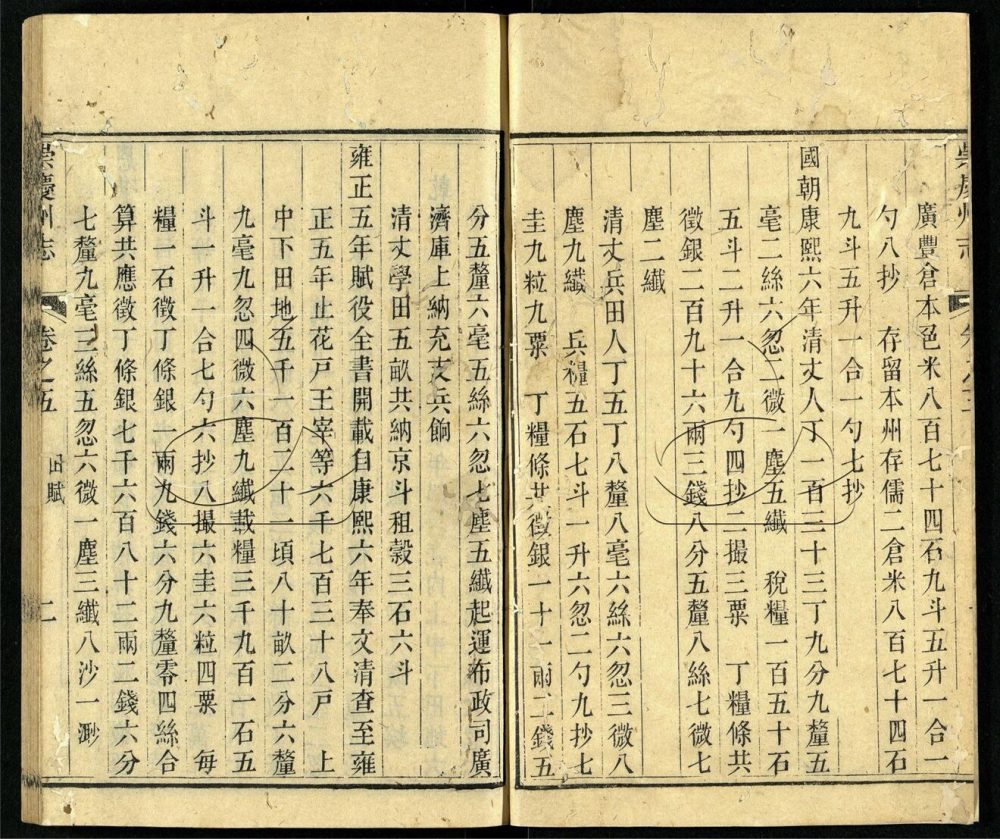 廣豐倉本邑米八百七十四石九斗五升一合一
勺八抄　存留本州存儒二倉米八百七十四石
九斗五升一合一勺七抄
國朝康熙六年清丈人丁一百三十三丁九分九釐五
毫二絲六忽二微一塵五纖　稅糧一百五十石
五斗二升一合九勺四抄二撮三粟　丁糧條共
徵銀二百九十六兩三錢八分五釐八絲七微七
塵二纖
清丈兵田人丁五丁八釐八毫六絲六忽三微八
塵九纖　兵糧五石七斗一升六忽二勺九抄七
圭九粒九粟　丁糧條共徵銀一十一兩二錢五
分五釐六毫五絲六忽七塵五纖起運布政司廣
濟庫上納充支兵餉
清丈學田五畝共納京斗租榖三石六斗
雍正五年賦役全書開載自康熙六年奉文清查至雍
正五年止花戶王宰等六千七百三十八戶　上
中下田地五千一百二十一頃八十畝二分六釐
九毫九忽四微六塵九纖載糧三千九百一石五
斗一升一合七勺六抄八撮六圭六粒四粟　每
糧一石徵丁條銀一兩九錢六分九釐零四絲合
算共應徵丁條銀七千六百八十二兩二錢六分
七釐九毫三絲五忽六微一塵三纖八沙一渺
崇慶州志　卷之五　田賦　二